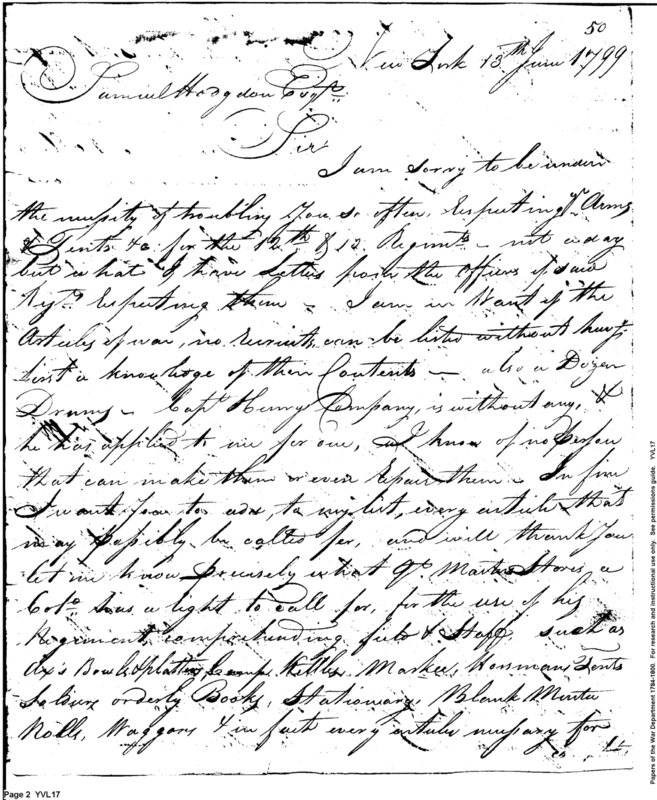 50
New York 13th June 1799
Samuel Hodgdon Esqr.
Sir
I am sorry to be under
the necessity of troubling You so often, Respecting ye. Arms
& Tents &c for the 12th & 13 Regimts - not a day
but what I have Letters from the officers of said
Regts. Respecting them - I am in Want of the
Articles of war, no recruits can be listed without havg.
first a knowledge of their Contents - also a Dozen
Drums - Capt. Henry Company, is without any, &
he has applied to me for one, I know of no Person
that can make them or even repair them - In fine
I want You to add, to my list, every article that
may Possibly be called for, and will thank You
let me know Precisely what Qr. Master Stores, a
Colo. has a right to call for, for the use of his
Regiment, comprehending field & Staff, such as
Ax's Bowls & platters Camp Kettles, Markee, Horsmans Tents
orderly Books, Stationary, Blank Muster
Rolls, Waggons & in fact every article necessary for
Page 2 YVL17
Papers of the War Department 1784-1800. For research and instructional use only. See permissions guide. YVL17